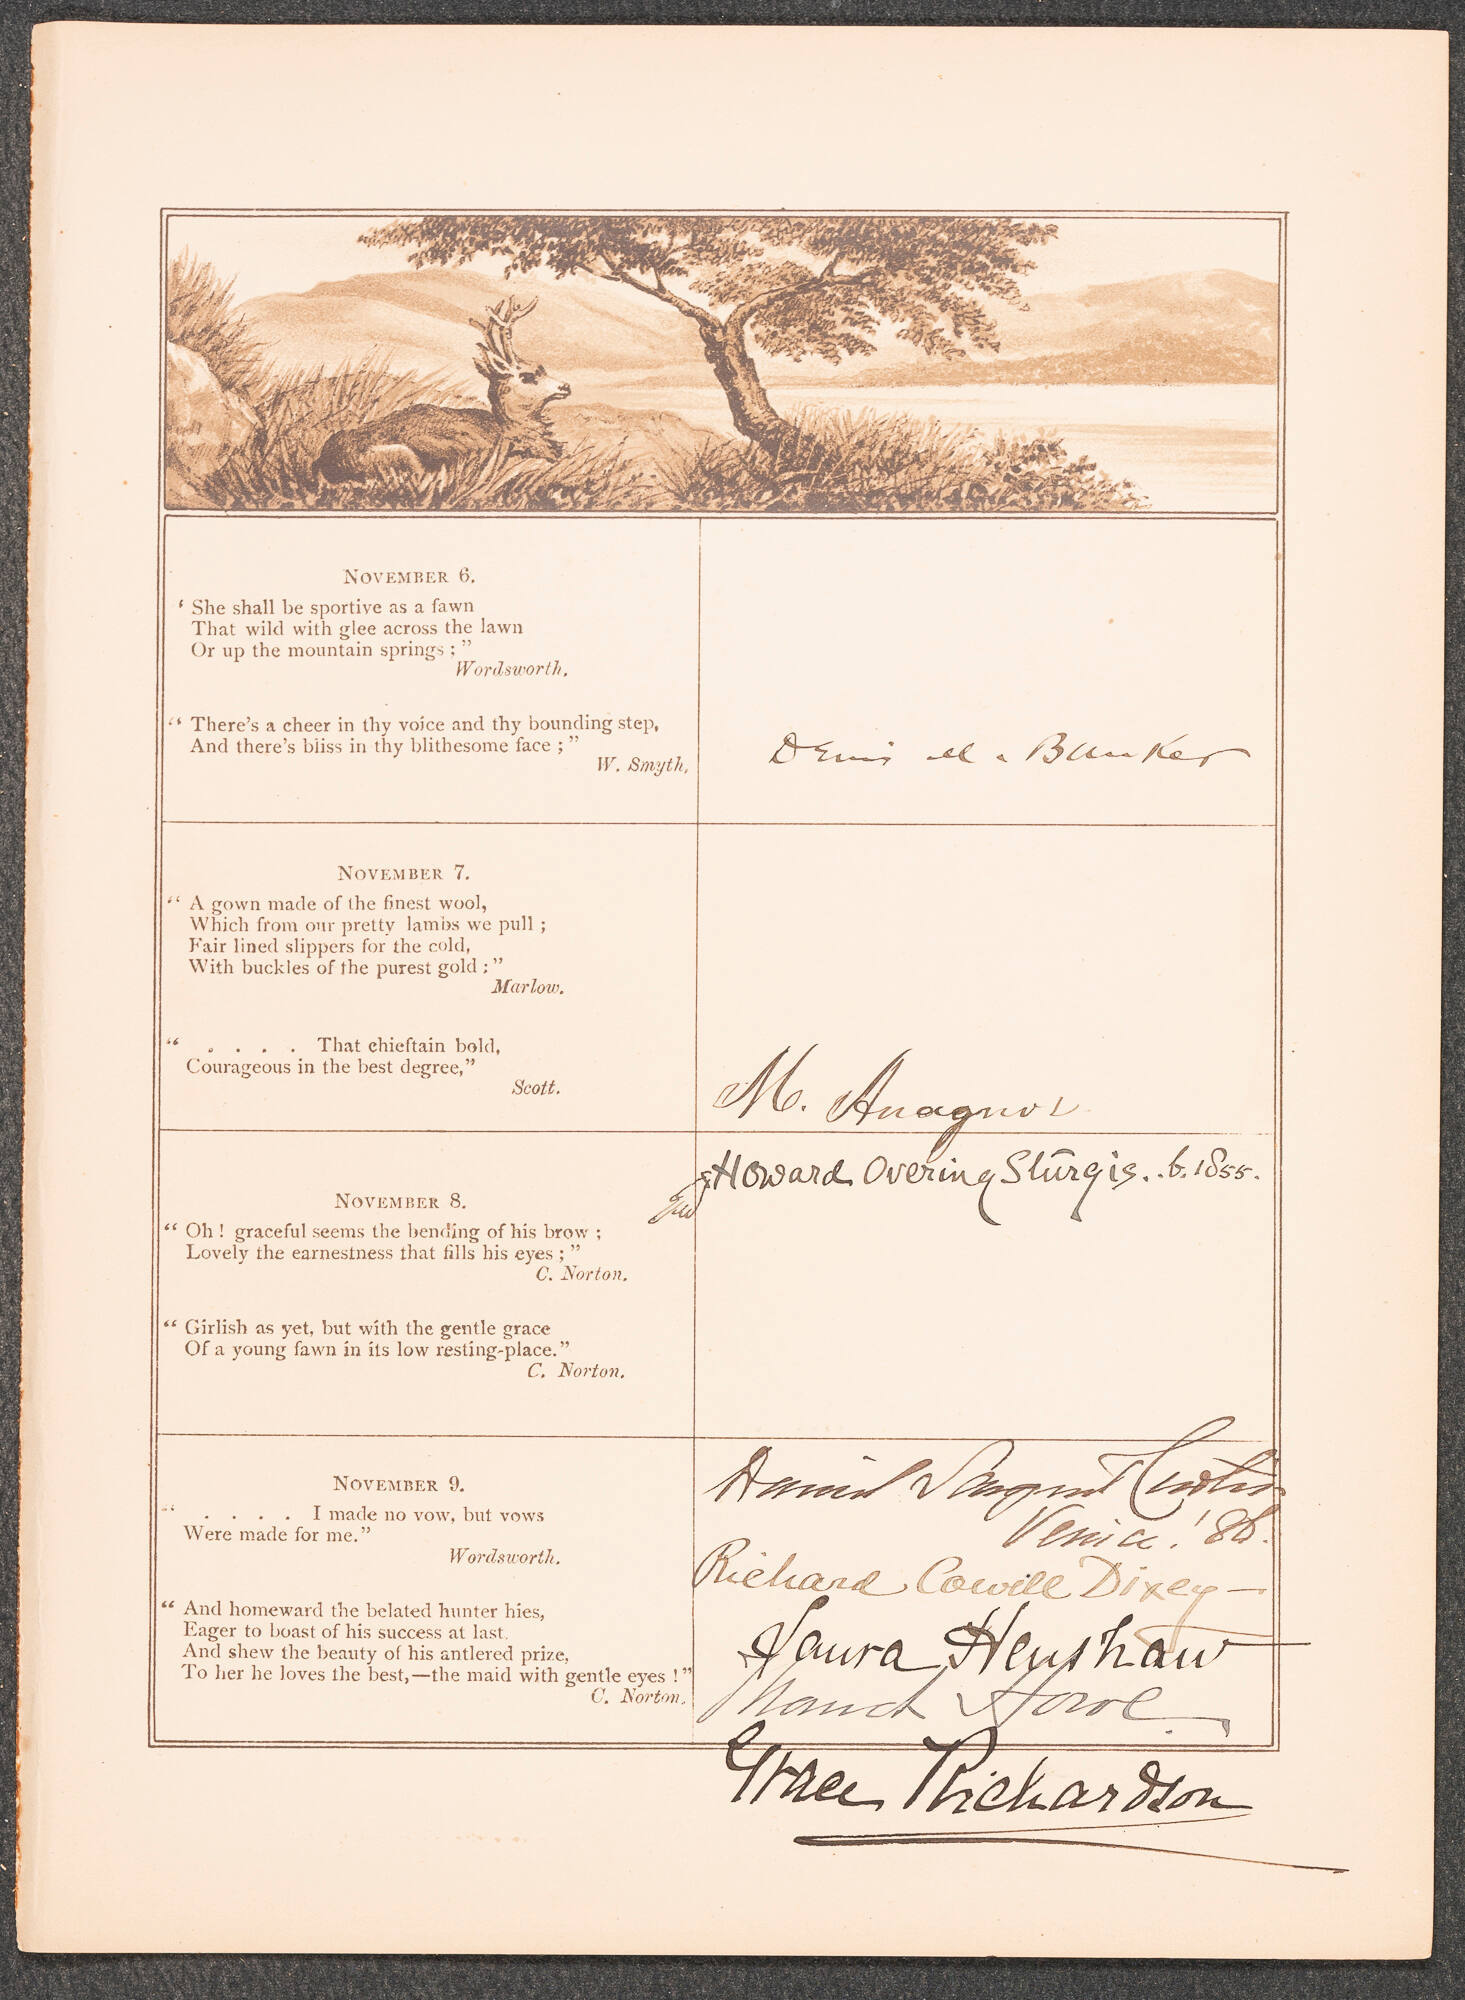 NOVEMBER 6.
‘ She shall be sportive as a fawn
That wild with glee across the lawn
Or up the mountain springs ; ”
Wordsworth.
“ There’s a cheer in thy voice and thy bounding step,
And there’s bliss in thy blithesome face ; ”
W. Smyth.
Denis M. Bunker
NOVEMBER 7.
“ A gown made of the finest wool,
Which from our pretty lambs we pull ;
Fair lined slippers for the cold,
With buckles of the purest gold ; ”
Marlow.
“ . . . . That chieftain bold,
Courageous in the best degree,”
Scott.
M. Anagnos
Howard Overing Sturgis. . b. 1855.
NOVEMBER 8.
“ Oh ! graceful seems the bending of his brow ;
Lovely the earnestness that fills his eyes ; ”
C. Norton.
“ Girlish as yet, but with the gentle grace
Of a young fawn in its low resting-place.”
C. Norton.
NOVEMBER 9.
“ . . . . I made no vow, but vows
Were made for me.”
Wordsworth.
“ And homeward the belated hunter hies,
Eager to boast of his success at last.
And shew the beauty of his antlered prize,
To her he loves the best,—the maid with gentle eyes ! ”
C. Norton.
Daniel Sargent Curtis
Venice. ’86.
Richard Cowell Dixey —
Laura Henshaw
Maud Howe.
Grace Richardson